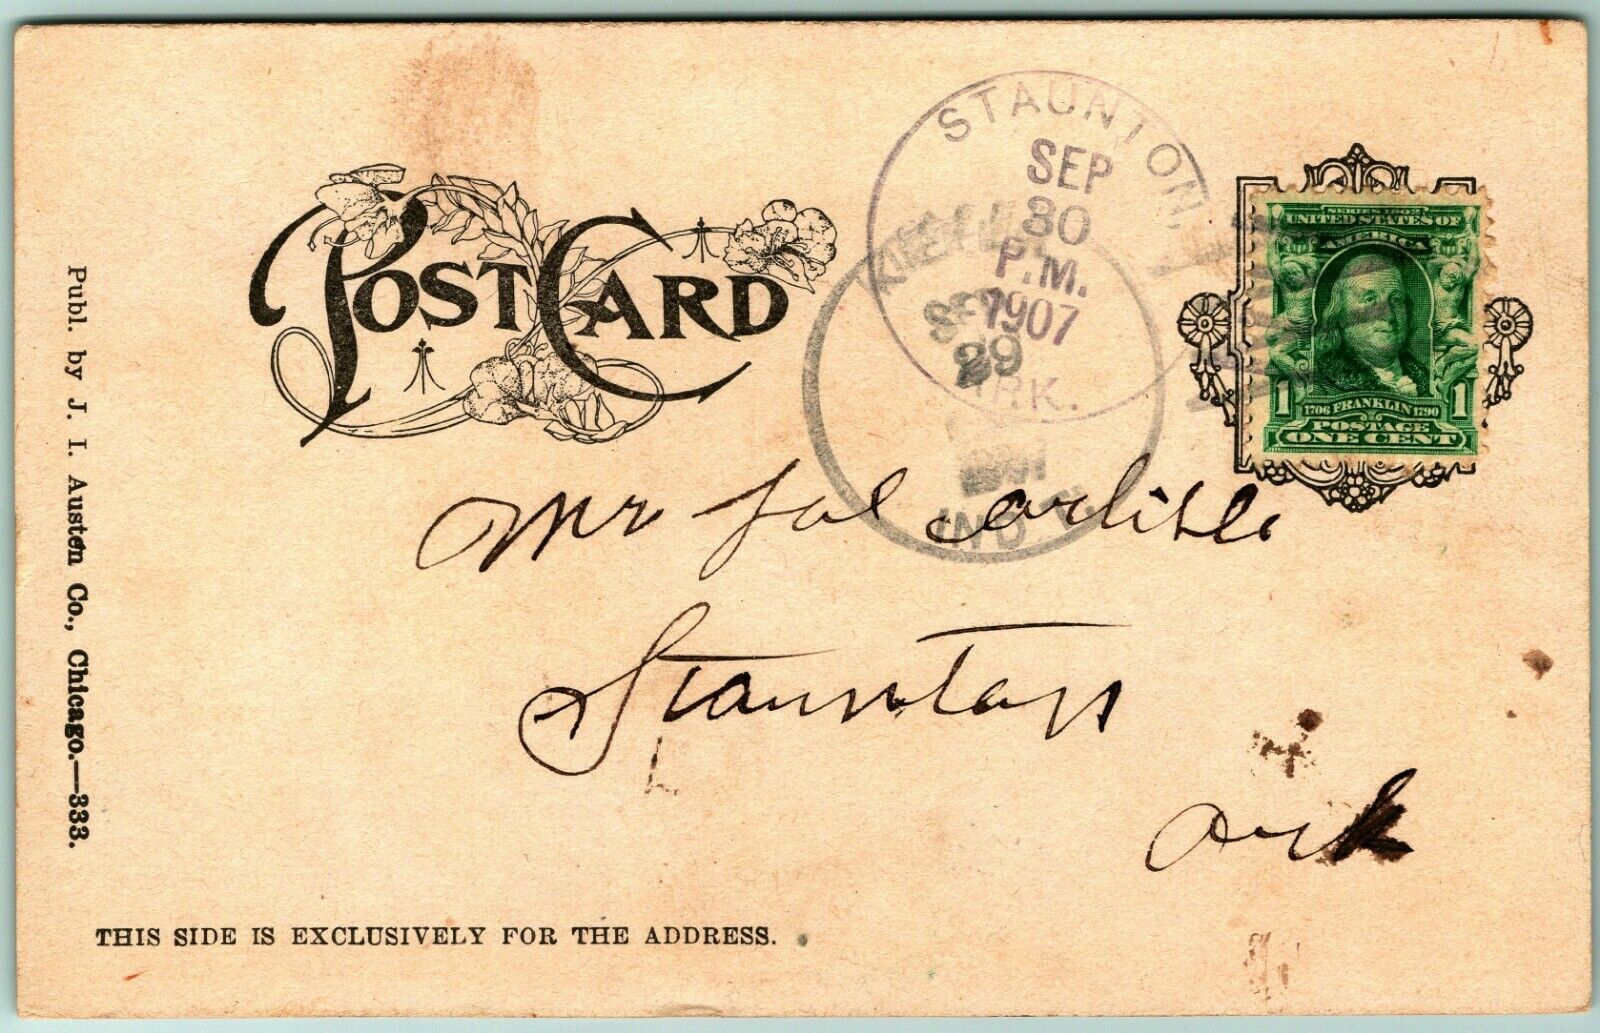 POST CARD
STAUNTON,
SEP
30
P.M.
1907
ARK.
SEP
29
IND. T.
SERIES 1902
UNITED STATES OF
AMERICA
1 1
1706 FRANKLIN 1790
POSTAGE
ONE CENT
Mr Sol Carlisle
Staunton
Ark
Publ. by J. I. Austen Co., Chicago.—333.
THIS SIDE IS EXCLUSIVELY FOR THE ADDRESS.